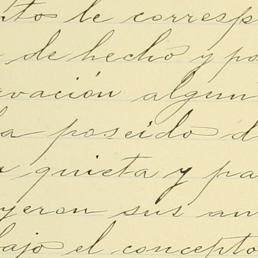 ntos le corresp
de hecho y po
rvación algun
la poseido d
quieta y pa
yeron sus an
bajo el concepto